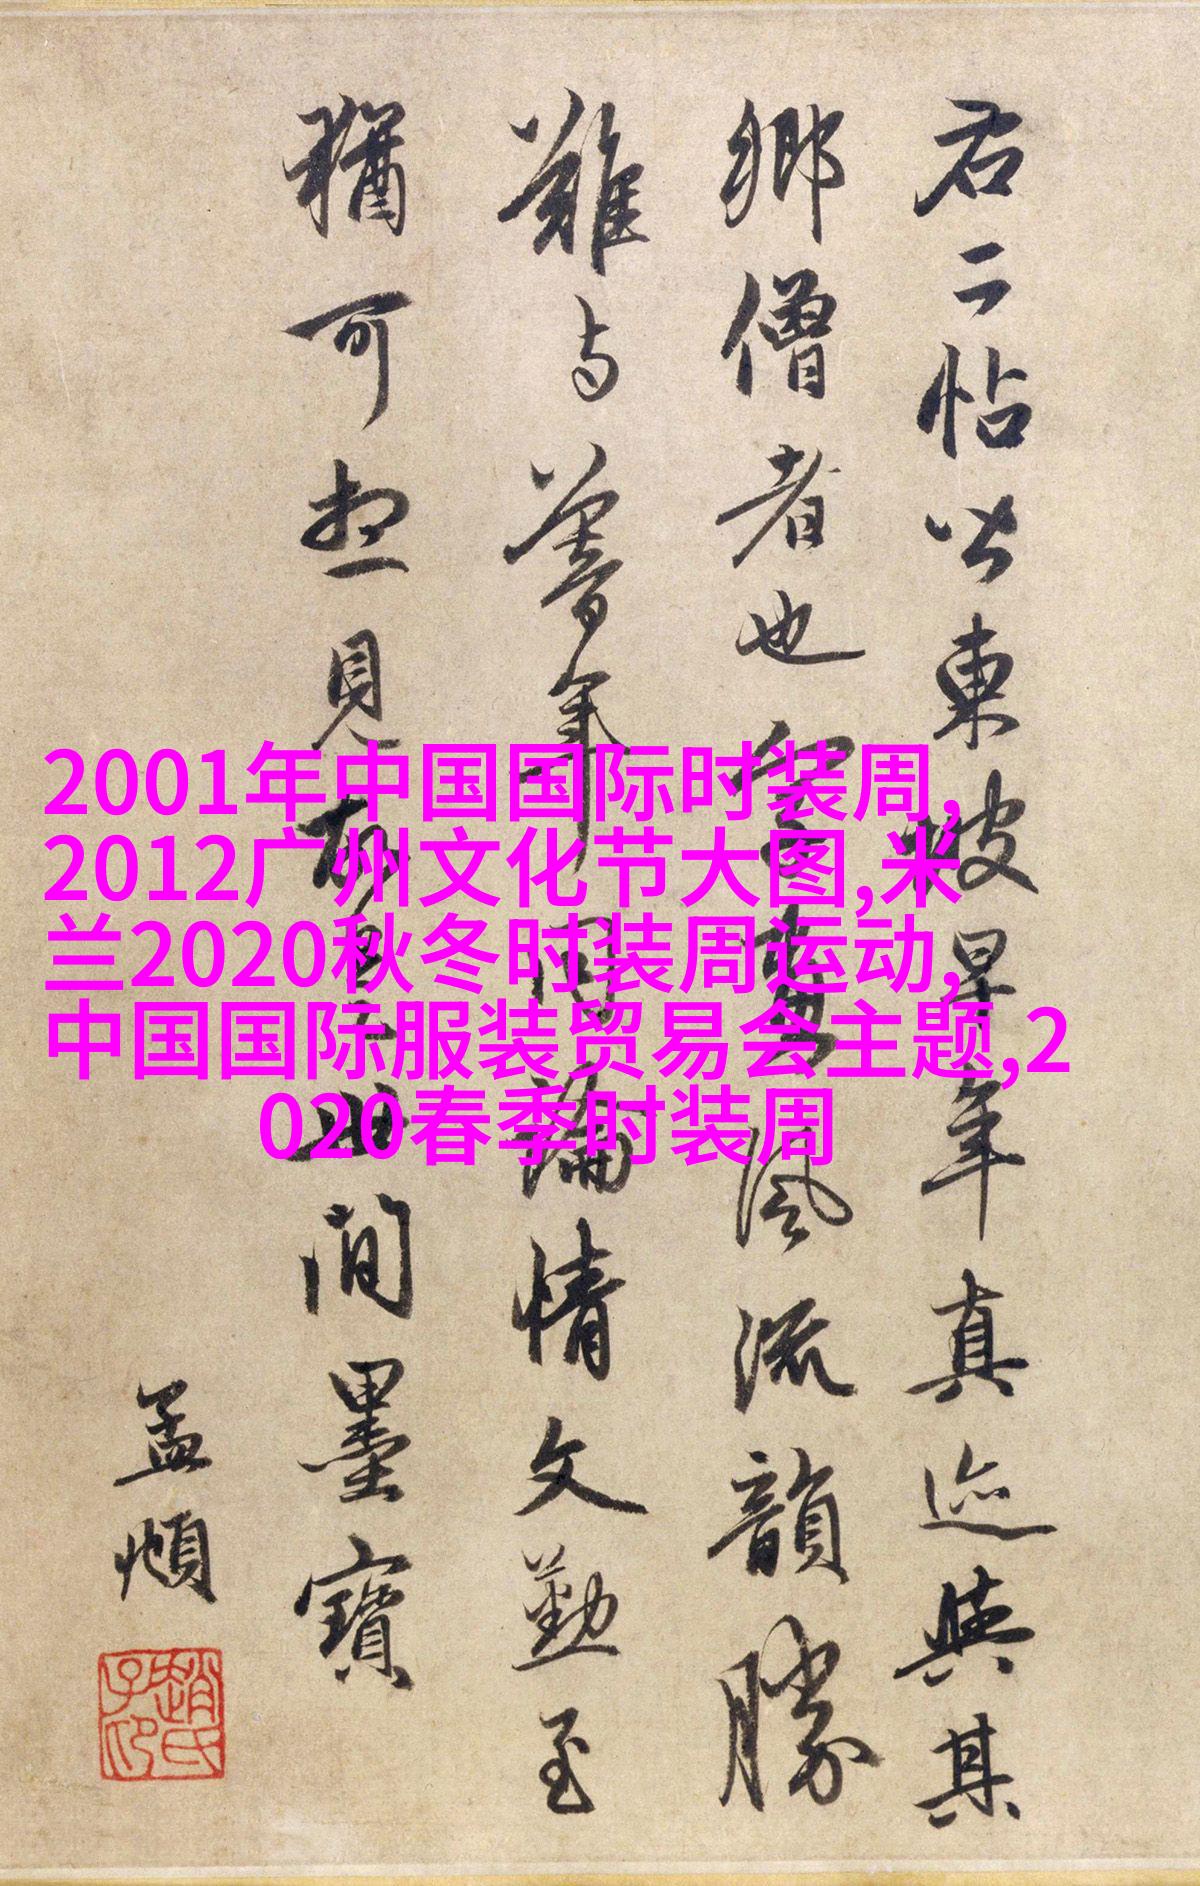 右二帖皆東坡早年真迹與其
鄉僧者也字畫風流韻勝
難与暮年同論情文勤至
猶可想見故是世間墨寶
孟頫
趙氏子印
2001年中国国际时装周,
2012广州文化节大图,米
兰2020秋冬时装周运动,
中国国际服装贸易会主题,2
020春季时装周